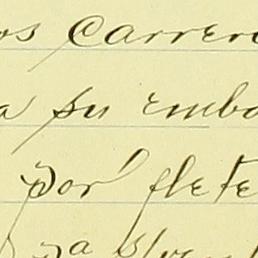 os Carrer
a su embo
por flete